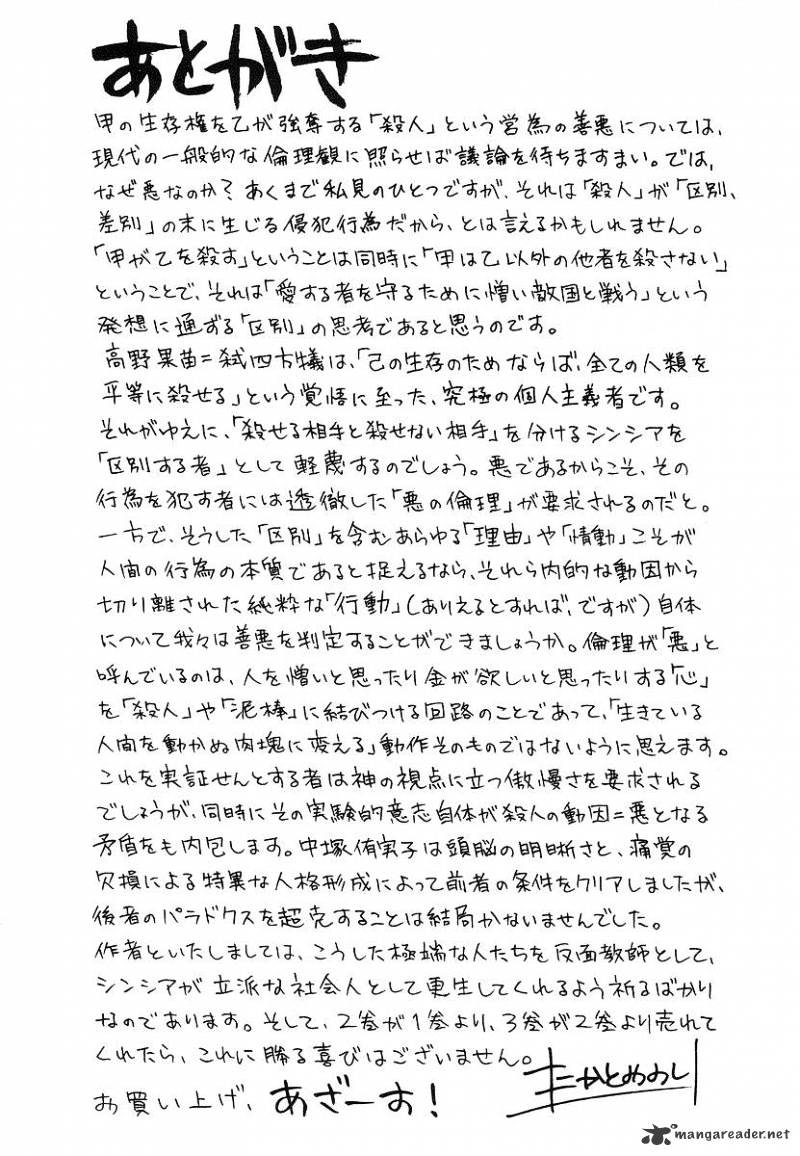 あとがき
甲の生存権を乙が強奪する「殺人」という営為の善悪については、
現代の一般的な倫理観に照らせば議論を待ちますまい。では、
なぜ悪なのか？あくまで私見のひとつですが、それは「殺人」が「区別、
差別」の末に生じる侵犯行為だから、とは言えるかもしれません。
「甲が乙を殺す」ということは同時に「甲は乙以外の他者を殺さない」
ということで、それは「愛する者を守るために憎い敵国と戦う」という
発想に通ずる「区別」の思考であると思うのです。
高野果苗＝弑四方犠は、「己の生存のためならば、全ての人類を
平等に殺せる」という覚悟に至った、究極の個人主義者です。
それがゆえに、「殺せる相手と殺せない相手」を分けるシンシアを
「区別する者」として軽蔑するのでしょう。悪であるからこそ、その
行為を犯す者には透徹した「悪の倫理」が要求されるのだと。
一方で、そうした「区別」を含むあらゆる「理由」や「情動」こそが
人間の行為の本質であると捉えるなら、それら内的な動因から
切り離された純粋な「行動」（ありえるとすれば、ですが）自体
について我々は善悪を判定することができましょうか。倫理が「悪」と
呼んでいるのは、人を憎いと思ったり金が欲しいと思ったりする「心」
を「殺人」や「泥棒」に結びつける回路のことであって、「生きている
人間を動かぬ肉塊に変える」動作そのものではないように思えます。
これを実証せんとする者は神の視点に立つ傲慢さを要求される
でしょうが、同時にその実験的意志自体が殺人の動因＝悪となる
矛盾をも内包します。中塚侑実子は頭脳の明晰さと、痛覚の
欠損による特異な人格形成によって前者の条件をクリアしましたが、
後者のパラドクスを超克することは結局かないませんでした。
作者といたしましては、こうした極端な人たちを反面教師として、
シンシアが立派な社会人として更生してくれるよう祈るばかり
なのであります。そして、2巻が1巻より、3巻が2巻より売れて
くれたら、これに勝る喜びはございません。
お買い上げ、あざーす！
mangareader.net